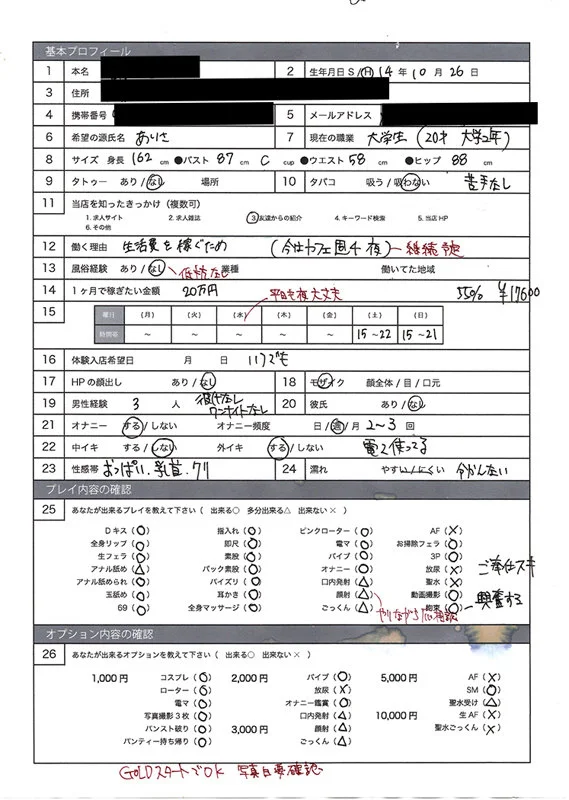 基本プロフィール
1 本名
2 生年月日 S / H 14 年 10 月 26 日
3 住所
4 携帯番号
5 メールアドレス
6 希望の源氏名 ありさ
7 現在の職業 大学生 (20才 大学2年)
8 サイズ 身長 162 cm ●バスト 87 cm C cup ●ウエスト 58 cm ●ヒップ 88 cm
9 タトゥー あり / なし 場所
10 タバコ 吸う / 吸わない 苦手なし
11 当店を知ったきっかけ (複数可)
1. 求人サイト 2. 求人雑誌 3. 友達からの紹介 4. キーワード検索 5. 当店 HP
6. その他
12 働く理由 生活費を稼ぐため (今はカフェ 週4 夜)
13 風俗経験 あり / なし 業種 働いてた地域
14 1ヶ月で稼ぎたい金額 20万円 55% ¥17600
平日も夜大丈夫
15 曜日 (月) (火) (水) (木) (金) (土) (日)
時間帯 ~ ~ ~ ~ ~ 15~22 15~21
16 体験入店希望日 月 日 いつでも
17 HP の顔出し あり / なし
18 モザイク 顔全体 / 目 / 口元
19 男性経験 3 人 ワンナイトなし
20 彼氏 あり / なし
21 オナニー する / しない オナニー頻度 日 / 週 2~3 回
22 中イキ する / しない 外イキ する / しない 電マ使ってる
23 性感帯 おっぱい、乳首、クリ
24 濡れ やすい / にくい 分かんない
プレイ内容の確認
25 あなたが出来るプレイを教えて下さい (出来る○ 多分出来る△ 出来ない×)
Dキス (○) 指入れ (○) ピンクローター (○) AF (×)
全身リップ (○) 即尺 (○) 電マ (○) お掃除フェラ (○)
生フェラ (○) 素股 (○) バイブ (○) 3P (○)
アナル舐め (△) バック素股 (○) オナニー (○) 放尿 (×) ご奉仕スキ
アナル舐められ (○) パイズリ (○) 口内発射 (△) 聖水 (×)
玉舐め (○) 耳かき (○) 顔射 (△) 動画撮影 (○)
69 (○) 全身マッサージ (○) ごっくん (△) 拘束 (○) 興奮する
オプション内容の確認
26 あなたが出来るオプションを教えて下さい (出来る○ 出来ない×)
1,000円 コスプレ (○) 2,000円 バイブ (○) 5,000円 AF (×)
ローター (○) 放尿 (×) SM (○)
電マ (○) オナニー鑑賞 (○) 聖水受け (△)
写真撮影3枚 (○) 口内発射 (△) 10,000円 生AF (×)
パンスト破り (○) 3,000円 顔射 (△) 聖水ごっくん (×)
パンティー持ち帰り (○) ごっくん (△)
GOLDスタートでOK 写真